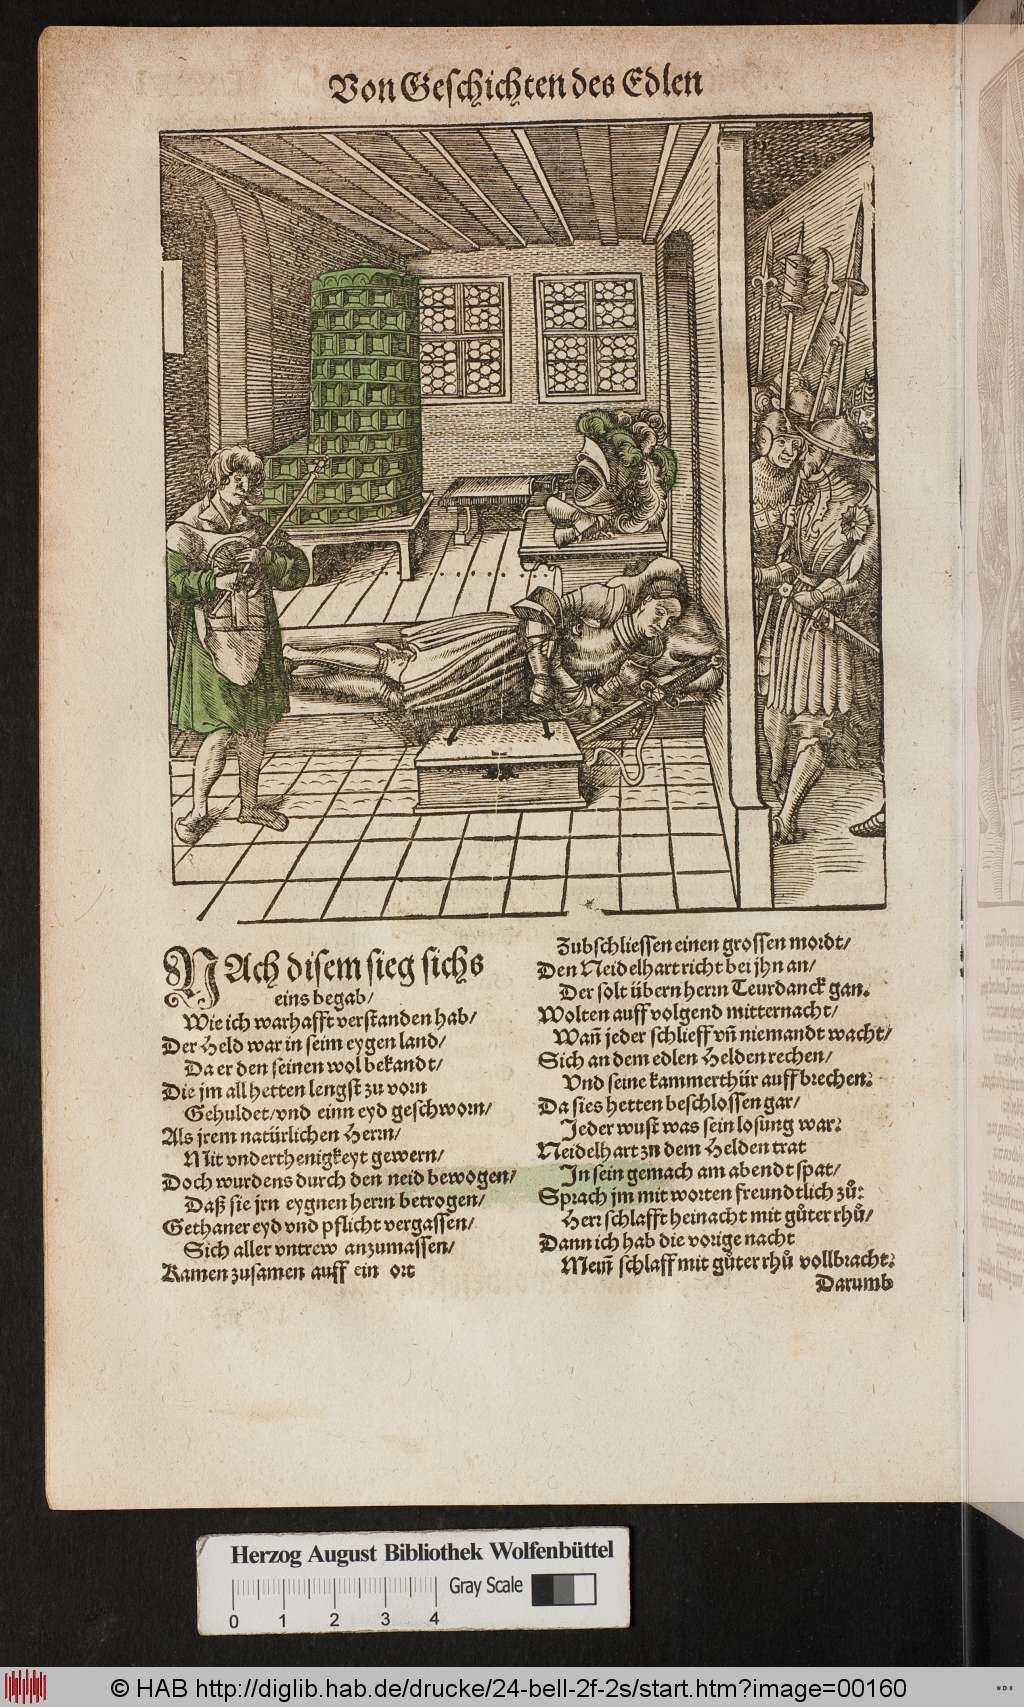 Von Geschichten des Edlen
NAch disem sieg sichs
eins begab/
Wie ich warhafft verstanden hab/
Der Held war in seim eygen land/
Da er den seinen wol bekandt/
Die jm all hetten lengst zu vorn
Gehuldet/vnd einn eyd geschworn/
Als jrem natürlichen Herrn/
Mit vnderthenigkeyt gewern/
Doch wurdens durch den neid bewogen/
Daß sie jrn eygnen herrn betrogen/
Gethaner eyd vnd pflicht vergassen/
Sich aller vntrew anzumassen/
Kamen zusamen auff ein ort
Zubschliessen einen grossen mordt/
Den Neidelhart richt bei jhn an/
Der solt übern herrn Teurdanck gan.
Wolten auff volgend mitternacht/
Wañ jeder schlieff vñ niemandt wacht/
Sich an dem edlen Helden rechen/
Vnd seine kammerthür auff brechen:
Da sies hetten beschlossen gar/
Jeder wust was sein losung war:
Neidelhart zn dem Helden trat
In sein gemach am abendt spat/
Sprach jm mit worten freundtlich zů:
Herr schlafft heinacht mit gůter rhů/
Dann ich hab die vorige nacht
Mein̄ schlaff mit gůter rhů vollbracht:
Darumb
Herzog August Bibliothek Wolfenbüttel
Gray Scale
0 1 2 3 4
© HAB http://diglib.hab.de/drucke/24-bell-2f-2s/start.htm?image=00160